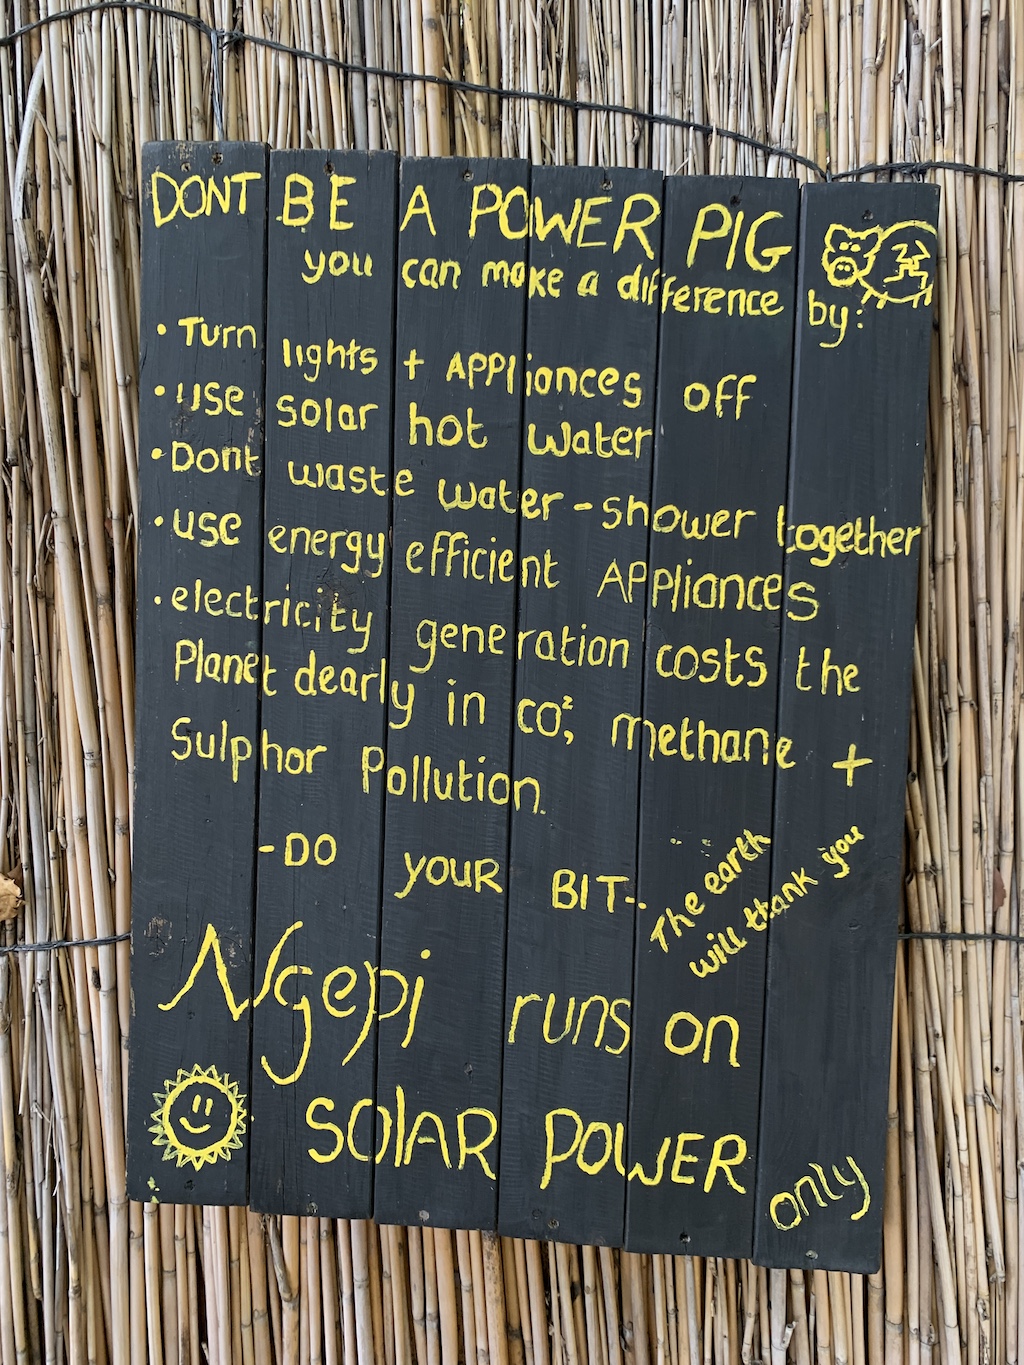 DONT BE A POWER PIG
you can make a difference by:
• Turn lights + APPliances off
• use solar hot water
• Dont waste water - shower together
• use energy efficient APPliances
• electricity generation costs the
Planet dearly in co², methane +
Sulphor Pollution.
- DO YOUR BIT -
The earth
will thank you
Ngepi runs on
SOlAR POWER
only